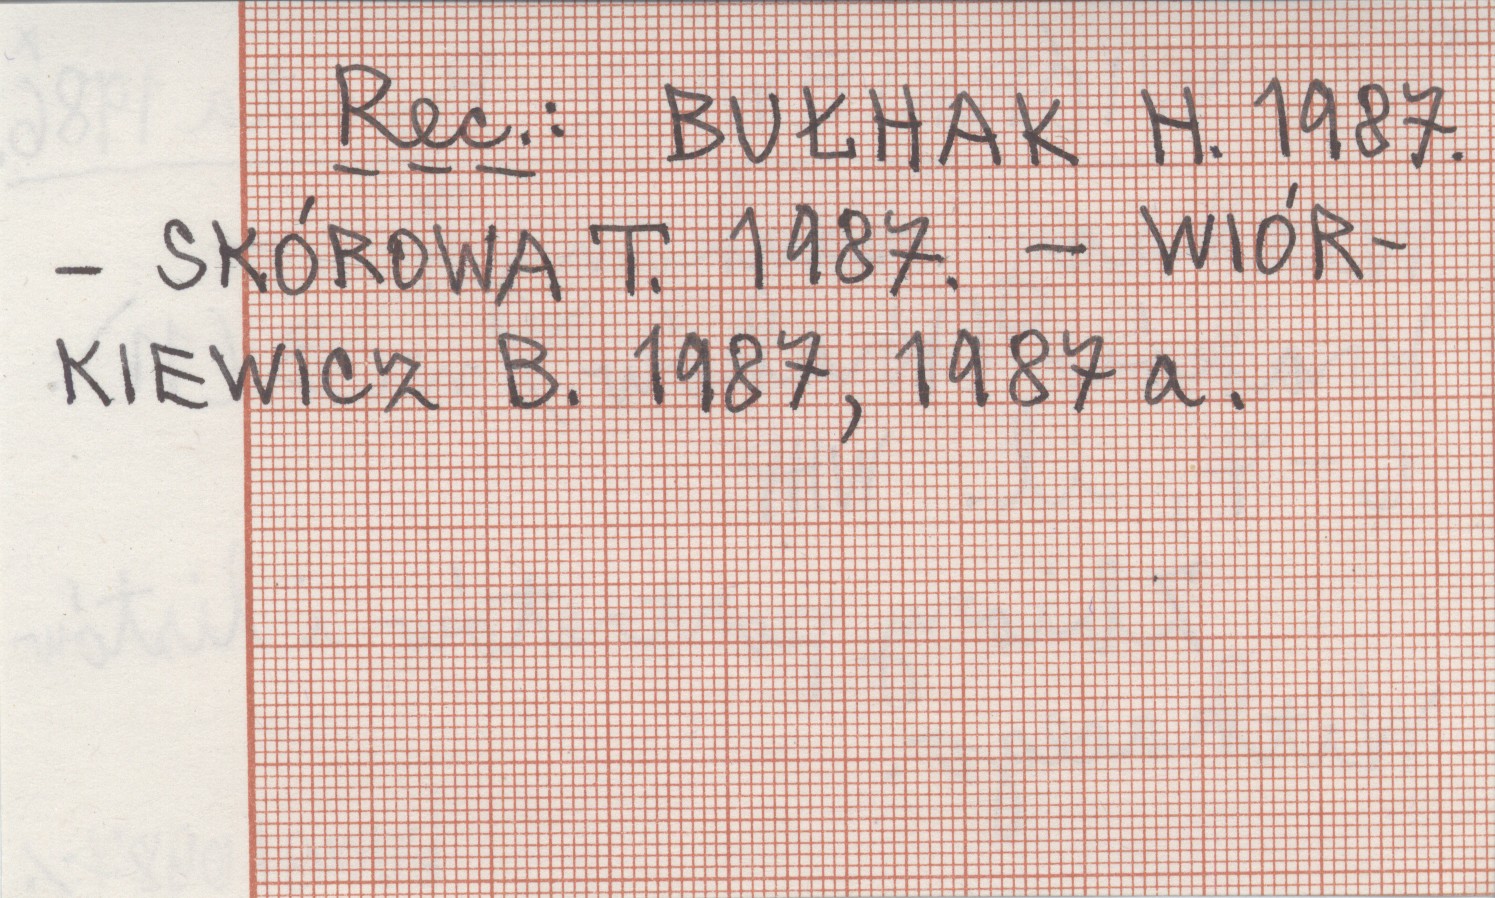 Rec.: BUŁHAK H. 1987.
– SKÓROWA T. 1987. – WIÓR-
KIEWICZ B. 1987, 1987 a.